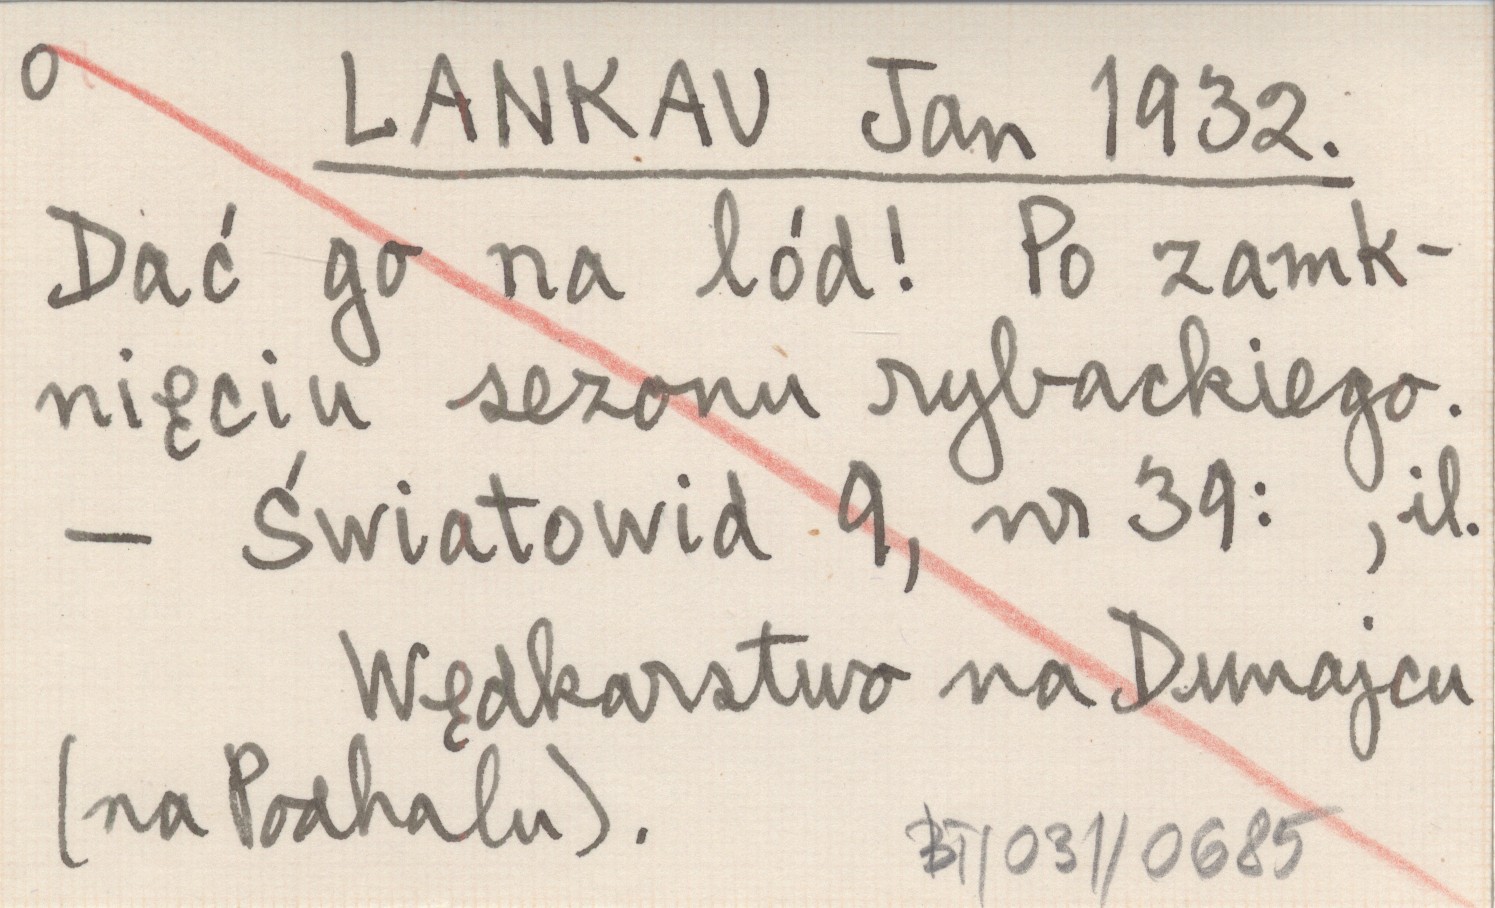 o LANKAU Jan 1932.
Dać go na lód! Po zamk-
nięciu sezonu rybackiego.
— Światowid 9, nr 39: , il.
Wędkarstwo na Dunajcu
(na Podhalu).
BT/031/0685